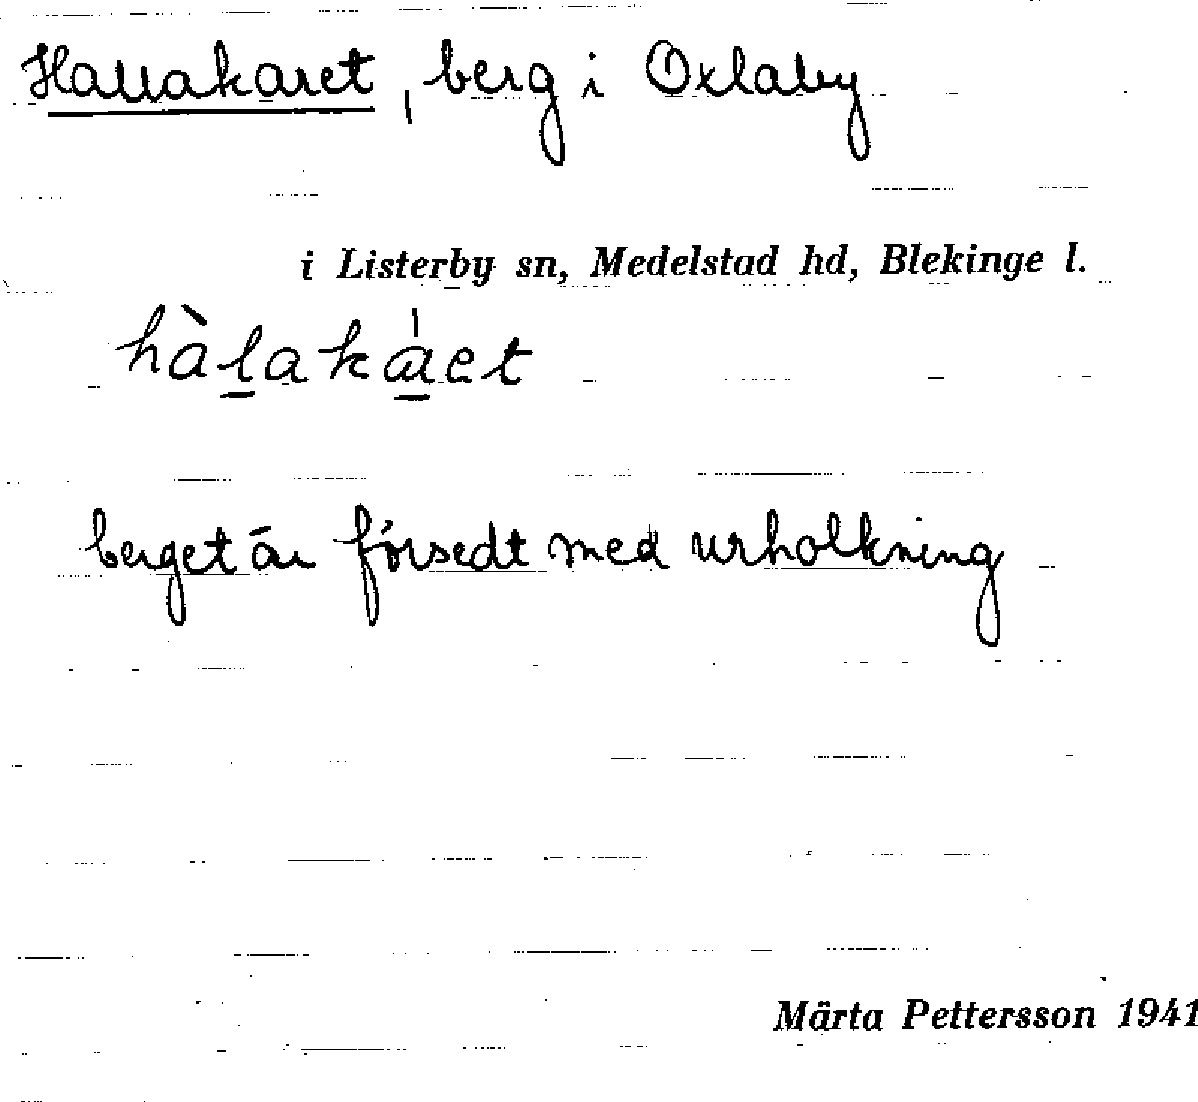 Hallakaret, berg i Oxlaby
i Listerby sn, Medelstad hd, Blekinge l.
hàlakáet
berget är försedt med urholkning
Märta Pettersson 1941